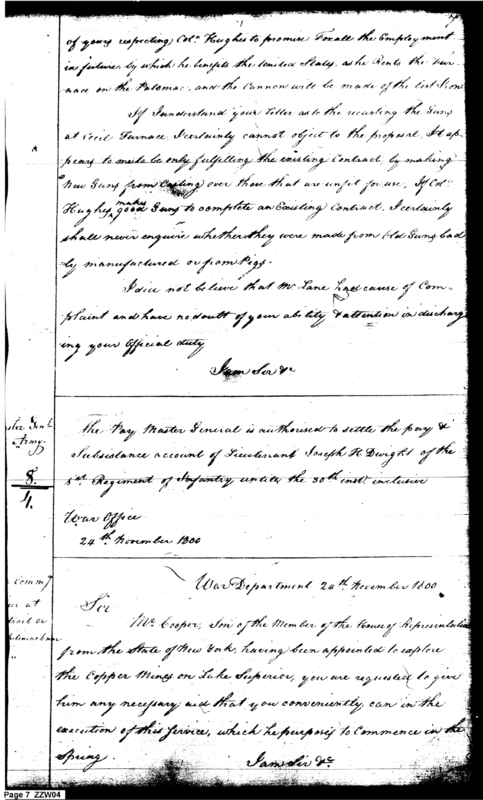 7
of yours respecting Col.º Hughes to promise For all the Employment
in future, by which he benefits the United States, as he Rents the Fur-
nace on the Potomac, and the Cannon will be made of the best Iron
If I understand your Letter as to the recasting the Guns
at Cecil Furnace I certainly cannot object to the proposal, It ap-
pears to me to be only fulfilling the existing Contract, by making
New Guns from Casting over those that are unfit for use, If Col.º
Hughes makes good Guns to complete an Existing Contract, I certainly
shall never enquire whether they were made from Old Guns bad
ly manufactured or from Pigs.
I did not believe that Mr. Lane had cause of Com-
plaint and have no doubt of your ability & attention in discharg
ing your Official duty
I am Sir &c
Army.
8.
4.
The Pay Master General is authorised to settle the pay &
Subsistance account of Lieutenant Joseph H Dwight of the
Regiment of Infantry untill the 30th inst. inclusive
War Office
24th November 1800
War Department 24th November 1800
Comm
at
Sir
Mr. Cooper, Son of the Member of the House of Representatives
from the State of New York, having been appointed to explore
the Copper Mines on Lake Superior, you are requested to give
him any necessary aid that you conveniently can in the
execution of this Service, which he purposes to Commence in the
Spring.
I am Sir &c
Page 7 ZZW04